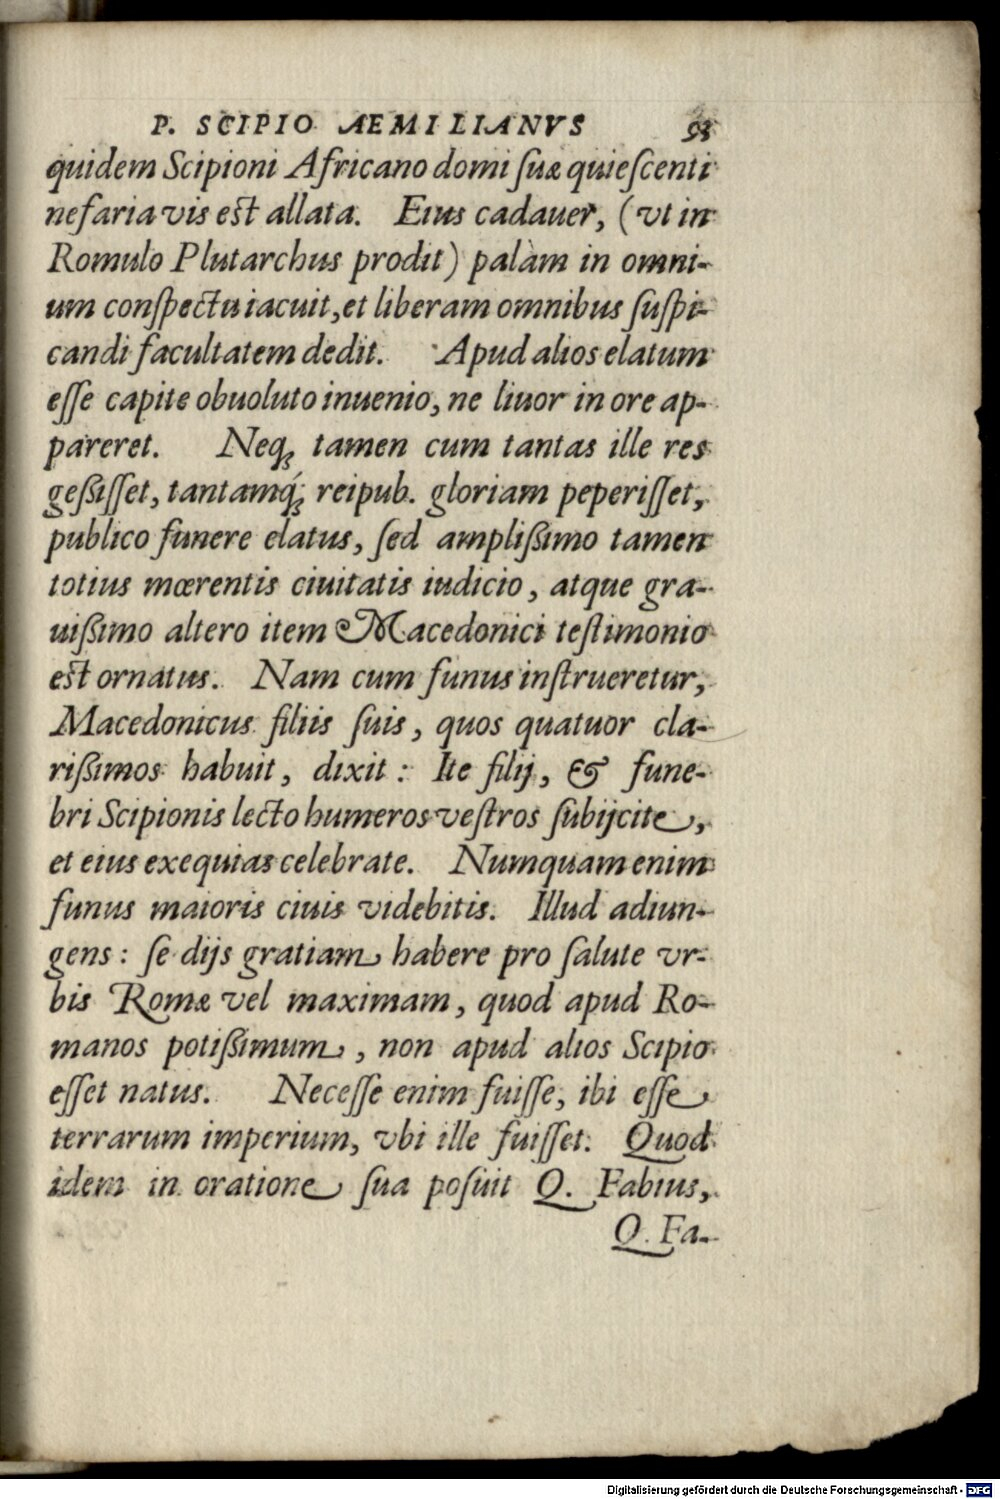 P. SCIPIO AEMILIANVS 93
quidem Scipioni Africano domi suæ quiescenti
nefaria vis est allata. Eius cadauer, (vt in
Romulo Plutarchus prodit) palàm in omni-
um conspectu iacuit, et liberam omnibus suspi-
candi facultatem dedit. Apud alios elatum
esse capite obuoluto inuenio, ne liuor in ore ap-
pareret. Neq; tamen cum tantas ille res
geßisset, tantamq́; reipub. gloriam peperisset,
publico funere elatus, sed amplißimo tamen
totius mœrentis ciuitatis iudicio, atque gra-
uißimo altero item Macedonici testimonio
est ornatus. Nam cum funus instrueretur,
Macedonicus filiis suis, quos quatuor cla-
rißimos habuit, dixit: Ite filij, & fune-
bri Scipionis lecto humeros vestros subijcite,
et eius exequias celebrate. Numquam enim
funus maioris ciuis videbitis. Illud adiun-
gens: se dijs gratiam habere pro salute vr-
bis Romæ vel maximam, quod apud Ro-
manos potißimum, non apud alios Scipio
esset natus. Necesse enim fuisse, ibi esse
terrarum imperium, vbi ille fuisset. Quod
idem in oratione sua posuit Q. Fabius,
Q. Fa-
Digitalisierung gefördert durch die Deutsche Forschungsgemeinschaft - DFG